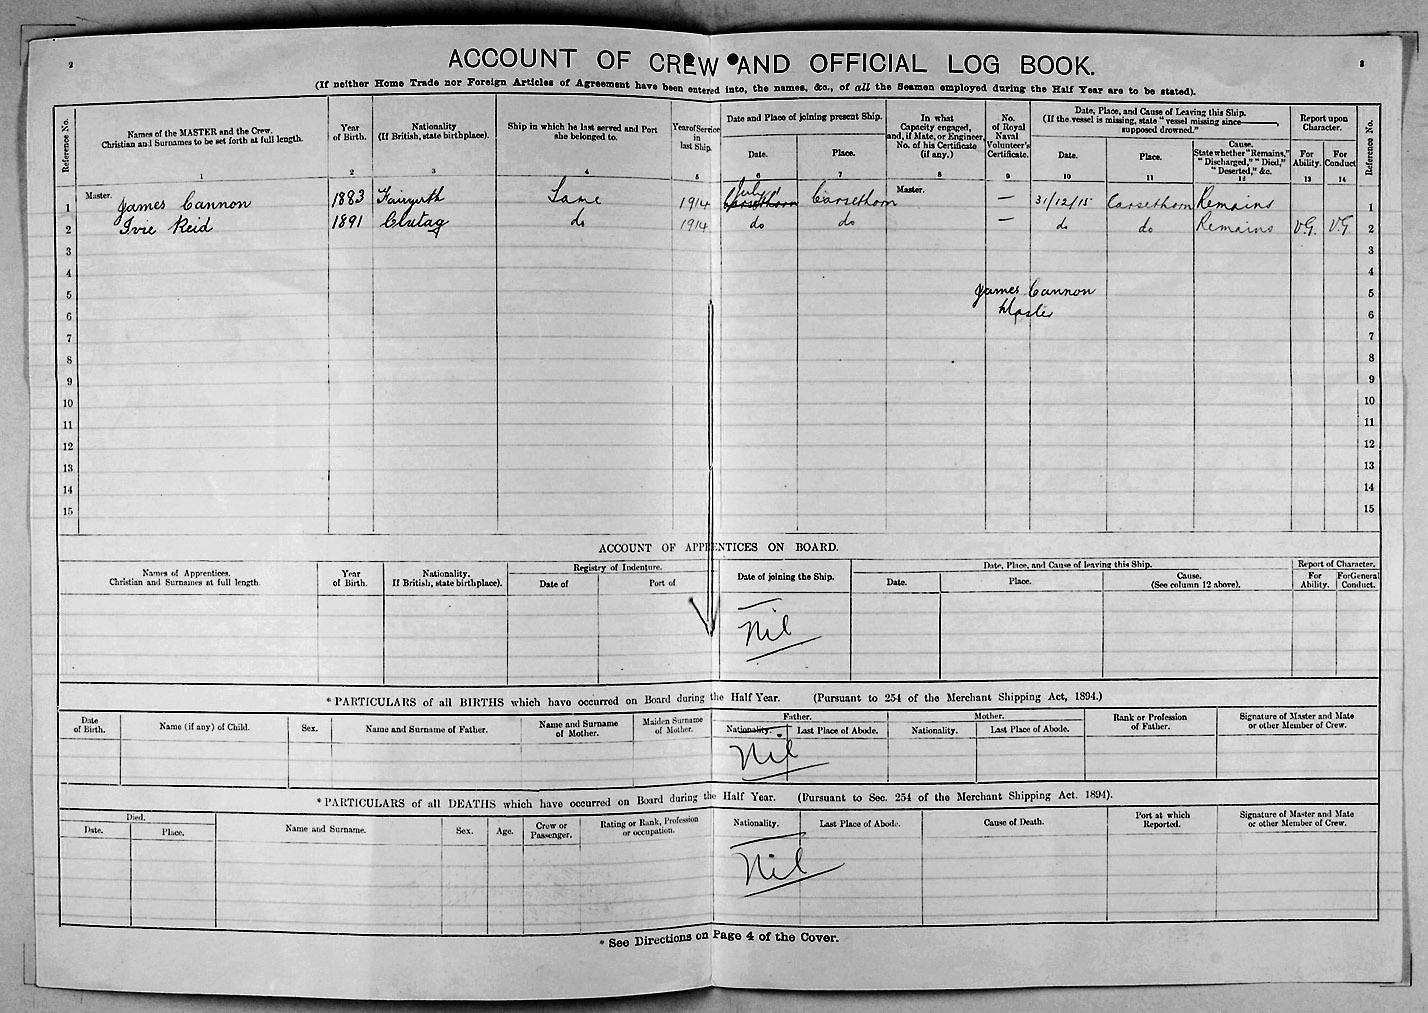 2
3
ACCOUNT OF CREW AND OFFICIAL LOG BOOK.
(If neither Home Trade nor Foreign Articles of Agreement have been entered into, the names, &c., of all the Seamen employed during the Half Year are to be stated).
Reference No.
Names of the MASTER and the Crew. Christian and Surnames to be set forth at full length.
Year of Birth.
Nationality (If British, state birthplace).
Ship in which he last served and Port she belonged to.
Year of Service in last Ship.
Date and Place of joining present Ship.
Date.
Place.
In what Capacity engaged, and, if Mate, or Engineer, No. of his Certificate (if any.)
No. of Royal Naval Volunteer's Certificate.
Date, Place, and Cause of Leaving this Ship.
(If the vessel is missing, state "vessel missing since
supposed drowned."
Date.
Place.
Cause. State whether "Remains," "Discharged," "Died," "Deserted," &c.
Report upon Character.
For Ability.
For Conduct
Reference No.
1 2 3 4 5 6 7 8 9 10 11 12 13 14
1 Master. James Cannon 1883 Same 1914 July 1 Carsethorn Master. — 31/12/15 Carsethorn Remains 1
2 Ivie Reid 1891 Clutag do 1914 do do — do do Remains V.G. V.G. 2
3 3
4 4
5 James Cannon 5
6 Master 6
7 7
8 8
9 9
10 10
11 11
12 12
13 13
14 14
15 15
ACCOUNT OF APPRENTICES ON BOARD.
Names of Apprentices. Christian and Surnames at full length.
Year of Birth.
Nationality. If British, state birthplace).
Registry of Indenture.
Date of
Port of
Date of joining the Ship.
Date, Place, and Cause of leaving this Ship.
Date.
Place.
Cause. (See column 12 above).
Report of Character.
For Ability.
For General Conduct.
Nil
*PARTICULARS of all BIRTHS which have occurred on Board during the Half Year. (Pursuant to 254 of the Merchant Shipping Act, 1894.)
Date of Birth.
Name (if any) of Child.
Sex.
Name and Surname of Father.
Name and Surname of Mother.
Maiden Surname of Mother.
Father.
Nationality.
Last Place of Abode.
Mother.
Nationality.
Last Place of Abode.
Rank or Profession of Father.
Signature of Master and Mate or other Member of Crew.
Nil
*PARTICULARS of all DEATHS which have occurred on Board during the Half Year. (Pursuant to Sec. 254 of the Merchant Shipping Act. 1894).
Died.
Date.
Place.
Name and Surname.
Sex.
Age.
Crew or Passenger.
Rating or Rank, Profession or occupation.
Nationality.
Last Place of Abode.
Cause of Death.
Port at which Reported.
Signature of Master and Mate or other Member of Crew.
Nil
* See Directions on Page 4 of the Cover.